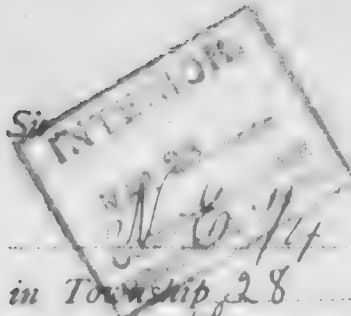 Sir
INTERIOR
N E 1/4
in Township 28